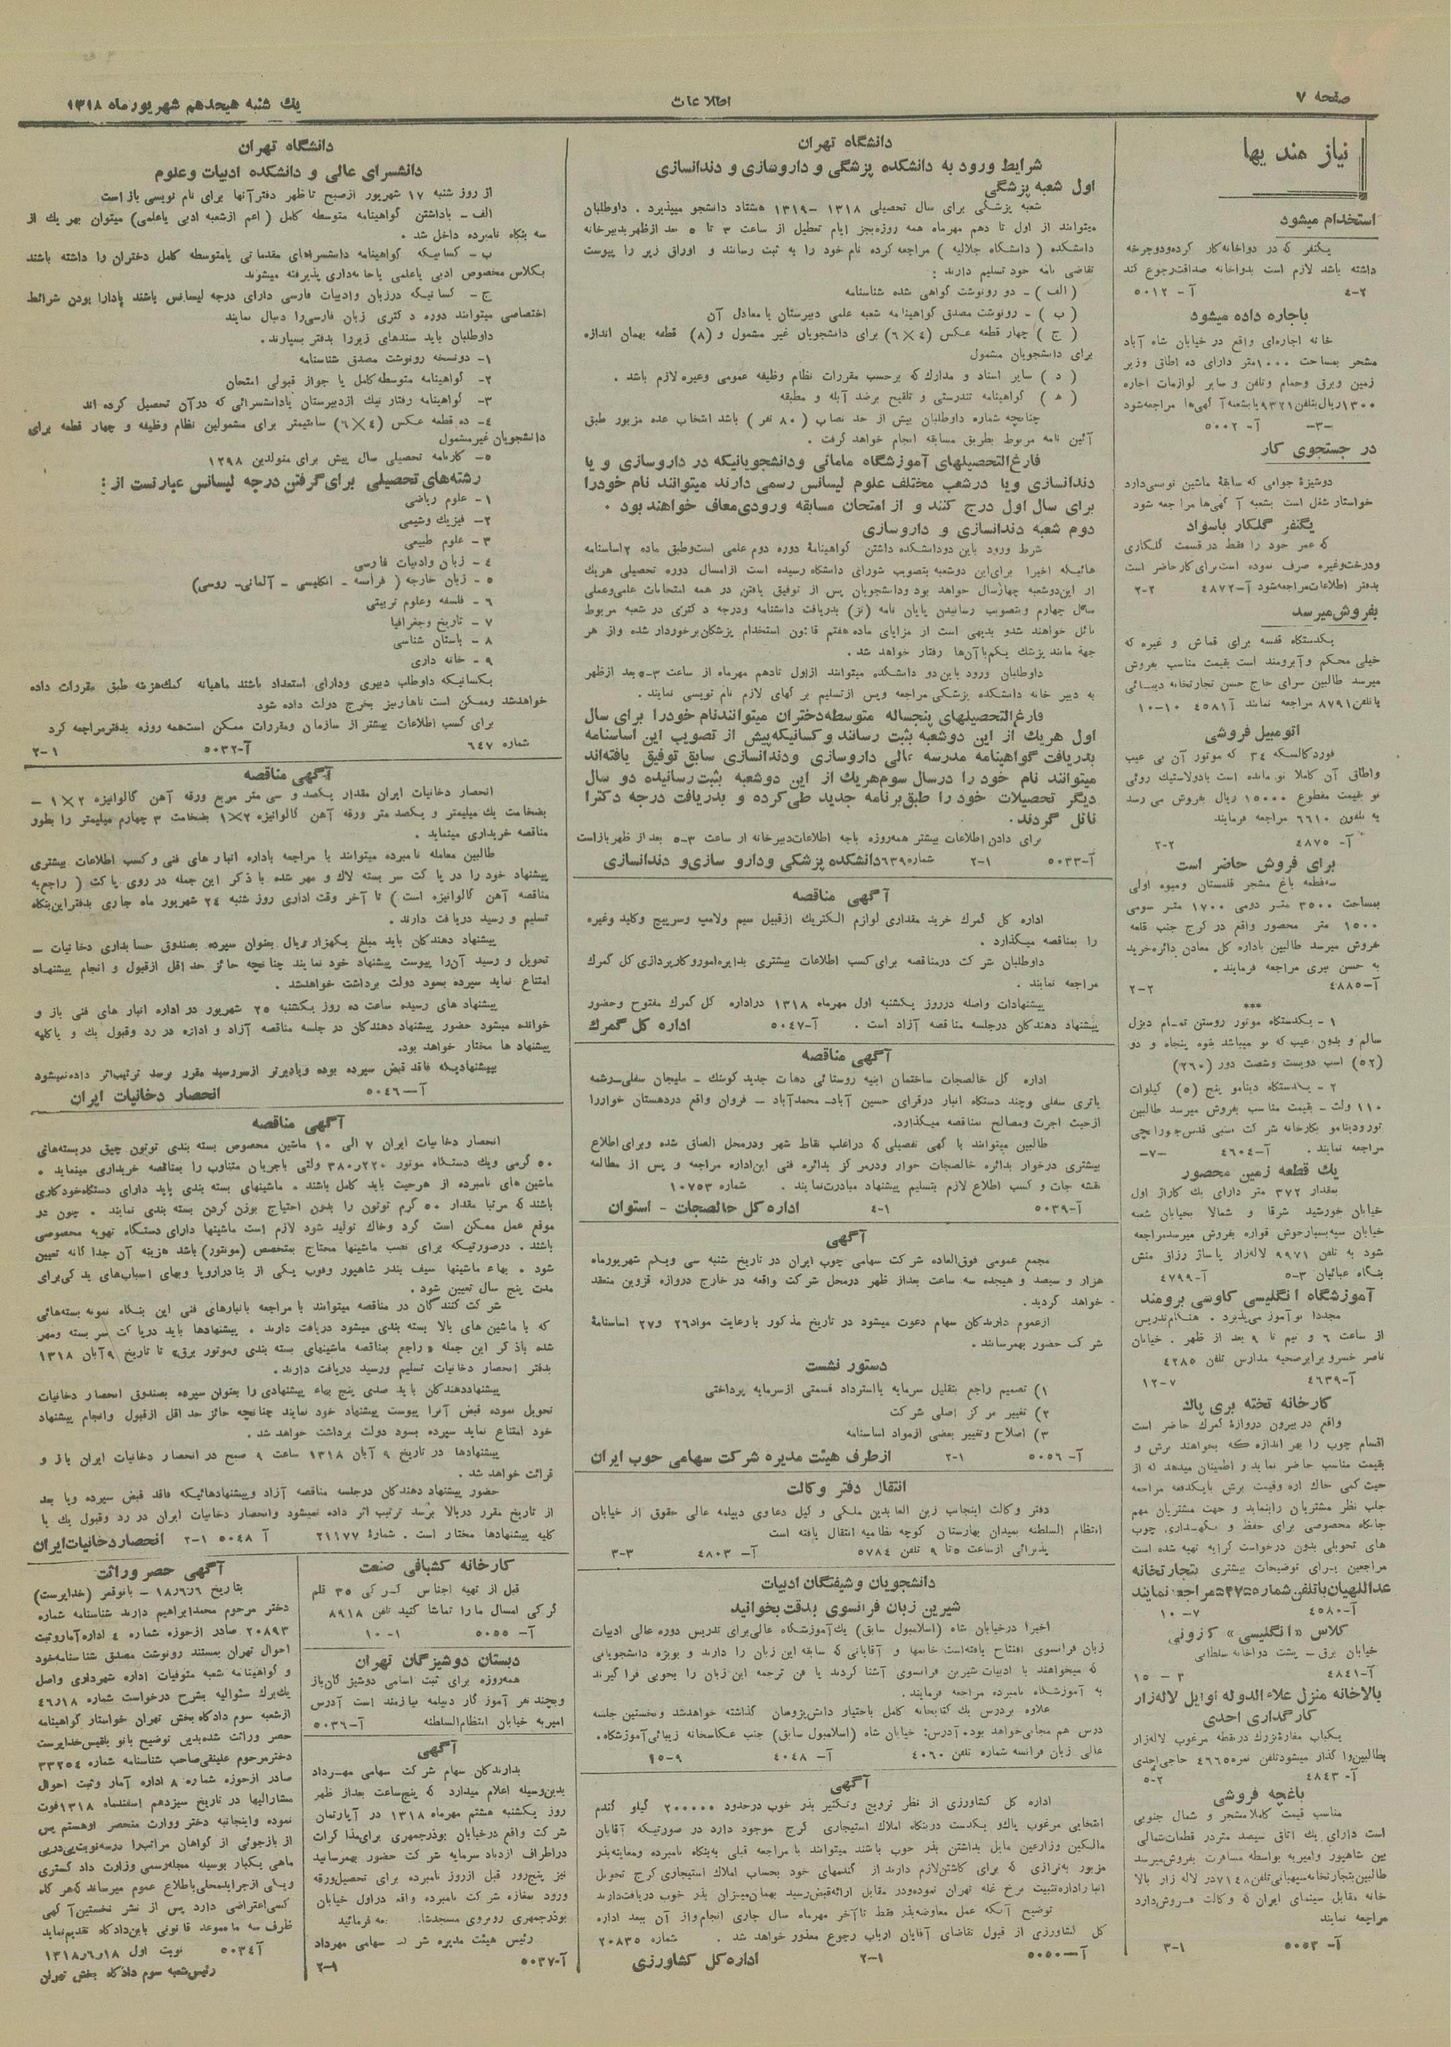 صفحه ۷
اطلاعات
یك شنبه هیجدهم شهریور ماه ۱۳۱۸
نیاز مندیها
استخدام میشود
یکنفر که در دواخانه کار کرده ودوچرخه
داشته باشد لازم است بدواخانه صداقت رجوع کند
۲-۴ آ- ۵۰۱۲
باجاره داده میشود
خانه اجاره‌ای واقع در خیابان شاه آباد
مشجر بمساحت ۱۰۰۰متر دارای ده اطاق وزیر
زمین وبرق وحمام وتلفن و سایر لوازمات اجاره
۱۳۰۰ریال بتلفن ۹۳۲۱ یا بشعبه آگهی‌ها مراجعه شود
-۳- آ- ۵۰۰۲
در جستجوی کار
دوشیزهٔ جوانی که سابقهٔ ماشین نویسی‌دارد
خواستار شغل است بشعبه آگهی‌ها مراجعه شود
یکنفر گلکار باسواد
که عمر خود را فقط در قسمت گلکاری
ودرخت‌وغیره صرف نموده است‌برای کار حاضر است
بدفتر اطلاعات‌مراجعه‌شود آ-۴۸۷۲ ۲-۲
بفروش میرسد
یکدستگاه قفسه برای قماش و غیره که
خیلی محکم وآبرومند است بقیمت مناسب بفروش
میرسد طالبین سرای حاج حسن تجارتخانه دیبائی
یا تلفن ۸۷۹۱ مراجعه نمایند آ۴۵۸۱ ۱۰-۱۰
اتومبیل فروشی
فورد کالسکه ۳۴ که موتور آن بی عیب
واطاق آن کاملا نو مانده است بادولاستیك روئی
نو بقیمت مقطوع ۱۵۰۰۰ ریال بفروش می رسد
به تلفون ۶۶۱۰ مراجعه فرمایند
آ- ۴۸۷۵ ۲-۲
برای فروش حاضر است
سه‌قطعه باغ مشجر قلمستان ومیوه اولی
بمساحت ۳۵۰۰ متر دومی ۱۷۰۰ متر سومی
۱۵۰۰ متر محصور واقع در کرج جنب قلعه
بفروش میرسد طالبین باداره کل معادن دائره‌خرید
به حسن نیری مراجعه فرمایند .
آ-۴۸۸۵ ۲-۲
***
۱ - یکدستگاه موتور روستن تمام دیزل
سالم و بدون عیب که نو میباشد بقوه پنجاه و دو
(۵۲) اسب دویست وشصت دور (۲۶۰)
۲ - یکدستگاه دینامو پنج (۵) کیلوات
۱۱۰ ولت - بقیمت مناسب بفروش میرسد طالبین
مراجعه نمایند . آ-۴۶۰۴ -۷-
یك قطعه زمین محصور
بمقدار ۳۷۲ متر دارای یك گاراژ اول
خیابان خورشید شرقا و شمالا بخیابان شعبه
شود به تلفن ۹۹۷۱ لاله‌زار پاساژ رزاق منش
بنگاه عبائیان ۳-۵ آ-۴۷۹۹
آموزشگاه انگلیسی کاوسی برومند
مجددا نوآموز می‌پذیرد . هنگام‌تدریس
از ساعت ۶ و نیم تا ۹ بعد از ظهر . خیابان
ناصر خسرو برابرصحیه مدارس تلفن ۴۲۸۵
آ-۴۶۳۹ ۷-۱۲
کارخانه تخته بری پاك
واقع در بیرون دروازهٔ گمرك حاضر است
اقسام چوب را بهر اندازه که بخواهند برش و
بقیمت مناسب حاضر نماید و اطمینان میدهد که از
حیث کمی خاك اره وقیمت برش بایکدفعه مراجعه
جلب نظر مشتریان رابنماید و جهت مشتریان مهم
جایگاه مخصوصی برای حفظ و نگهداری چوب
های تحویلی بدون درخواست کرایه تهیه شده است
مراجعین برای توضیحات بیشتری بتجارتخانه
عداللهیان باتلفن شماره۵۴۷۵مراجعه نمایند
آ-۴۵۸۰ ۷- ۱۰
کلاس «انگلیسی» کازرونی
خیابان برق - پشت دواخانه سلطانی
آ-۴۸۴۱ ۳ - ۱۵
بالاخانه منزل علاءالدوله اوایل لاله‌زار
کارگذاری احدی
یکباب مغازه‌بزرك درنقطه مرغوب لاله‌زار
بطالبین‌واگذار میشودتلفن نمره۴۶۶۵ حاجی‌احدی
آ- ۴۸۴۳ ۲-۵
باغچه فروشی
مناسب قیمت کاملامشجر و شمال جنوبی
است دارای یك اتاق سیصد متردر قطعات‌شمالی
بین شاهپور وامیریه بواسطه مسافرت بفروش‌میرسد
طالبین‌بتجارتخانه‌سیهبانی‌تلفن۷۱۴۸در لاله زار بالا
خانه مقابل سینمای ایران که وکالت فروش‌دارد
مراجعه نمایند
آ- ۵۰۵۳ ۱-۳
دانشگاه تهران
شرایط ورود به دانشکده پزشگی و داروسازی و دندانسازی
اول شعبه پزشگی
شعبه پزشکی برای سال تحصیلی ۱۳۱۸ -۱۳۱۹ هشتاد دانشجو میپذیرد . داوطلبان
میتوانند از اول تا دهم مهرماه همه روزه‌بجز ایام تعطیل از ساعت ۳ تا ۵ بعد ازظهر بدبیرخانه
دانشکده ( دانشگاه جلالیه ) مراجعه کرده نام خود را به ثبت رسانند و اوراق زیر را پیوست
تقاضی نامه خود تسلیم دارند :
( الف ) - دو رونوشت گواهی شده شناسنامه
( ب ) - رونوشت مصدق گواهینامه شعبه علمی دبیرستان یا معادل آن
( ج ) چهار قطعه عکس (۴×۶) برای دانشجویان غیر مشمول و (۸) قطعه بهمان اندازه
برای دانشجویان مشمول
( د ) سایر اسناد و مدارك که برحسب مقررات نظام وظیفه عمومی وغیره لازم باشد .
( ه ) گواهینامه تندرستی و تلقیح برضد آبله و مطبقه
چنانچه شماره داوطلبان بیش از حد نصاب ( ۸۰ نفر ) باشد انتخاب عده مزبور طبق
آئین نامه مربوط بطریق مسابقه انجام خواهد گرفت .
فارغ‌التحصیلهای آموزشگاه مامائی ودانشجویانیکه در داروسازی و یا
دندانسازی ویا درشعب مختلف علوم لیسانس رسمی دارند میتوانند نام خودرا
برای سال اول درج کنند و از امتحان مسابقه ورودی‌معاف خواهند بود .
دوم شعبه دندانسازی و داروسازی
شرط ورود باین دودانشکده داشتن گواهینامهٔ دوره دوم علمی است‌وطبق ماده ۲اساسنامه
هائیکه اخیرا برای‌این دوشعبه بتصویب شورای دانشگاه رسیده است ازامسال دوره تحصیلی هریك
از این‌دوشعبه چهارسال خواهد بود ودانشجویان پس از توفیق یافتن در همه امتحانات علمی‌وعملی
سال چهارم وبتصویب رسانیدن پایان نامه (تز) بدریافت دانشنامه ودرجه دکتری در شعبه مربوط
نائل خواهند شدو بدیهی است از مزایای ماده هفتم قانون استخدام پزشکان برخوردار شده واز هر
جهة مانند پزشك یکم‌باآن‌ها رفتار خواهد شد .
داوطلبان ورود باین دو دانشکده میتوانند ازاول تادهم مهرماه از ساعت ۳-۵بعد ازظهر
به دبیر خانه دانشکده پزشکی مراجعه وپس ازتسلیم برگهای لازم نام نویسی نمایند .
فارغ‌التحصیلهای پنجساله متوسطه‌دختران میتوانندنام خودرا برای سال
اول هریك از این دوشعبه بثبت رسانند وکسانیکه‌پیش از تصویب این اساسنامه
بدریافت گواهینامه مدرسه عالی داروسازی ودندانسازی سابق توفیق یافته‌اند
میتوانند نام خود را درسال سوم‌هریك از این دوشعبه بثبت‌رسانیده دو سال
دیگر تحصیلات خود را طبق‌برنامه جدید طی‌کرده و بدریافت درجه دکترا
نائل گردند .
برای دادن اطلاعات بیشتر همه‌روزه باجه اطلاعات‌دبیرخانه از ساعت ۳-۵ بعد از ظهر بازاست
آ-۵۰۳۳ ۱-۲ شماره۶۳۹دانشکده پزشکی ودارو سازی‌و دندانسازی
آگهی مناقصه
اداره کل گمرك خرید مقداری لوازم الکتریك ازقبیل سیم ولامپ وسرپیچ وکلید وغیره
را بمناقصه میگذارد .
داوطلبان شرکت درمناقصه برای کسب اطلاعات بیشتری بدایره‌اموروکارپردازی کل گمرك
مراجعه نمایند .
پیشنهادات واصله درروز یکشنبه اول مهرماه ۱۳۱۸ دراداره کل گمرك مفتوح وحضور
پیشنهاد دهندکان درجلسه مناقصه آزاد است . آ-۵۰۴۷ اداره کل گمرك
آگهی مناقصه
اداره کل خالصجات ساختمان ابنیه روستائی دهات جدید کوشك - ملیجان سفلی-رشمه
یاتری سفلی وچند دستگاه انبار درقرای حسین آباد- محمدآباد - فروان واقع دردهستان خواررا
ازحیث اجرت ومصالح بمناقصه میگذارد.
طالبین میتوانند با گهی تفصیلی که دراغلب نقاط شهر ودرمحل الصاق شده وبرای‌اطلاع
بیشتری درخوار بدائره خالصجات خوار ودرمرکز بدائره فنی این‌اداره مراجعه و پس از مطالعه
نقشه جات و کسب اطلاع لازم بتسلیم پیشنهاد مبادرت‌نمایند . شماره ۱۰۷۵۳
آ-۵۰۳۹ ۱-۴ اداره کل خالصجات - استوان
آگهی
مجمع عمومی فوق‌العاده شرکت سهامی چوب ایران در تاریخ شنبه سی ویکم شهریورماه
هزار و سیصد و هیجده سه ساعت بعداز ظهر درمحل شرکت واقعه در خارج دروازه قزوین منعقد
خواهد گردید .
ازعموم دارندکان سهام دعوت میشود در تاریخ مذکور بارعایت مواد۲۶ و۲۷ اساسنامهٔ
شرکت حضور بهمرسانند .
دستور نشست
۱) تصمیم راجع بتقلیل سرمایه یااسترداد قسمتی ازسرمایه پرداختی
۲) تغییر مرکز اصلی شرکت
۳) اصلاح وتغییر بعضی ازمواد اساسنامه
آ- ۵۰۵۶ ۱-۲ ازطرف هیئت مدیره شرکت سهامی چوب ایران
انتقال دفتر وکالت
دفتر وکالت اینجانب زین العابدین ملکی و کیل دعاوی دیپلمه عالی حقوق از خیابان
انتظام السلطنه بمیدان بهارستان کوچه نظامیه انتقال یافته است
پذیرائی ازساعت ۵تا ۹ تلفن ۵۷۸۴ آ- ۴۸۰۳ ۳-۳
دانشجویان وشیفتگان ادبیات
شیرین زبان فرانسوی بدقت بخوانید
اخیرا درخیابان شاه (اسلامبول سابق) یك‌آموزشگاه عالی‌برای تدریس دوره عالی ادبیات
زبان فرانسوی افتتاح یافته‌است خانمها و آقایانی که سابقه این زبان را دارند و بویژه دانشجویانی
که میخواهند با ادبیات شیرین فرانسوی آشنا گردند یا فن ترجمه این زبان را بخوبی فرا گیرند
به آموزشگاه نامبرده مراجعه فرمایند .
علاوه بردرس یك کتابخانه کامل باختیار دانش‌پژوهان گذاشته خواهدشد ونخستین جلسه
درس هم مجانی‌خواهد بود. آدرس: خیابان شاه (اسلامبول سابق) جنب عکاسخانه زیبائی‌آموزشگاه.
عالی زبان فرانسه شماره تلفن ۴۰۶۰ آ- ۴۰۴۸ ۹-۱۵
آگهی
اداره کل کشاورزی از نظر ترویج وتکثیر بذر خوب درحدود ۲۰۰۰۰۰ کیلو گندم
انتخابی مرغوب پاك‌و یکدست دربنگاه املاك استیجاری کرج موجود دارد در صورتیکه آقایان
مالکین وزارعین مایل بداشتن بذر خوب باشند میتوانند با مراجعه قبلی به‌بنگاه نامبرده ومعاینه‌بذر
مزبور بقدرازی که برای کاشتن‌لازم دارند از گندمهای خود بحساب املاك استیجاری کرج تحویل
انبار اداره تثبیت نرخ غله تهران نموده‌ودر مقابل ارائه‌قبض‌رسید بهمان‌میزان بذر خوب دریافت‌دارند
توضیح آنکه عمل معاوضه‌بذر فقط تاآخر مهرماه سال جاری انجام‌واز آن ببعد اداره
کل کشاورزی از قبول تقاضای آقایان ارباب رجوع معذور خواهد شد . شماره ۲۰۸۳۵
آ-۵۰۵۰ ۱-۲ اداره کل کشاورزی
دانشگاه تهران
دانشسرای عالی و دانشکده ادبیات وعلوم
از روز شنبه ۱۷ شهریور ازصبح تاظهر دفترآنها برای نام نویسی باز است
الف - باداشتن گواهینامه متوسطه کامل ( اعم ازشعبه ادبی یاعلمی) میتوان بهریك از
سه بنگاه نامبرده داخل شد .
ب - کسانیکه گواهینامه دانشسراهای مقدماتی یامتوسطه کامل دختران را داشته باشند
بکلاس مخصوص ادبی یاعلمی یاخانه‌داری پذیرفته میشوند
ج - کسانیکه درزبان وادبیات فارسی دارای درجه لیسانس باشند بادارا بودن شرائط
اختصاصی میتوانند دوره دکتری زبان فارسی‌را دنبال نمایند
داوطلبان باید سندهای زیررا بدفتر بسپارند.
۱- دونسخه رونوشت مصدق شناسنامه
۲- گواهینامه متوسطه کامل یا جواز قبولی امتحان
۳- گواهینامه رفتار نیك ازدبیرستان یادانشسرائی که درآن تحصیل کرده اند
۴- ده قطعه عکس (۴×۶) سانتیمتر برای مشمولین نظام وظیفه و چهار قطعه برای
دانشجویان غیرمشمول
۵- کارنامه تحصیلی سال پیش برای متولدین ۱۲۹۸
رشته‌های تحصیلی برای گرفتن درجه لیسانس عبارتست از :
۱- علوم ریاضی
۲- فیزیك وشیمی
۳- علوم طبیعی
۴ - زبان وادبیات فارسی
۵ - زبان خارجه ( فرانسه - انگلیسی - آلمانی- روسی)
۶ - فلسفه وعلوم تربیتی
۷ - تاریخ وجغرافیا
۸ - باستان شناسی
۹ - خانه داری
بکسانیکه داوطلب دبیری ودارای استعداد باشند ماهیانه کمك‌هزینه طبق مقررات داده
خواهدشد وممکن است ناهارنیز بخرج دولت داده شود
برای کسب اطلاعات بیشتر از سازمان ومقررات ممکن است‌همه روزه بدفترمراجعه کرد
شماره ۶۴۷ آ-۵۰۳۲ ۱-۲
آگهی مناقصه
انحصار دخانیات ایران مقدار یکصد و سی متر مربع ورقه آهن گالوانیزه ۲×۱ -
بضخامت یك میلیمتر و یکصد متر ورقه آهن گالوانیزه ۲×۱ بضخامت ۳ چهارم میلیمتر را بطور
مناقصه خریداری مینماید .
طالبین معامله نامبرده میتوانند با مراجعه باداره انبار های فنی وکسب اطلاعات بیشتری
پیشنهاد خود را در پاکت سر بسته لاك و مهر شده با ذکر این جمله در روی پاکت ( راجع‌به
مناقصه آهن گالوانیزه است ) تا آخر وقت اداری روز شنبه ۲۴ شهریور ماه جاری بدفتراین‌بنگاه
تسلیم و رسید دریافت دارند .
پیشنهاد دهندکان باید مبلغ یکهزار ریال بعنوان سپرده بصندوق حسابداری دخانیات -
تحویل و رسید آن‌را پیوست پیشنهاد خود نمایند چنانچه حائز حداقل ازقبول و انجام پیشنهاد
امتناع نماید سپرده بسود دولت برداشت خواهدشد .
پیشنهاد های رسیده ساعت ده روز یکشنبه ۲۵ شهریور در اداره انبار های فنی باز و
خوانده میشود حضور پیشنهاد دهندکان در جلسه مناقصه آزاد و اداره در رد وقبول یك و یاکلیه
پیشنهاد ها مختار خواهد بود.
بپیشنهادیکه فاقد قبض سپرده بوده ویادیرتر ازسررسید مقرر برسد ترتیب‌اثر داده‌نمیشود
آ-۵۰۴۶ انحصار دخانیات ایران
آگهی مناقصه
انحصار دخانیات ایران ۷ الی ۱۰ ماشین مخصوص بسته بندی توتون چپق دربسته‌های
۵۰ گرمی ویك دستگاه موتور ۲۲۰ر۳۸۰ ولتی باجریان متناوب را بمناقصه خریداری مینماید .
ماشین های نامبرده از هرحیث باید کامل باشند . ماشینهای بسته بندی باید دارای دستگاه‌خودکاری
باشند که مرتبا مقدار ۵۰ گرم توتون را بدون احتیاج بوزن کردن بسته بندی نمایند . چون در
موقع عمل ممکن است گرد وخاك تولید شود لازم است ماشینها دارای دستگاه تهویه مخصوصی
باشند . درصورتیکه برای نصب ماشینها محتاج بمتخصص (مونتور) باشد هزینه آن جداگانه تعیین
شود . بهاء ماشینها سیف بندر شاهپور وفوب یکی از بنادراروپا وبهای اسباب‌های یدکی‌برای
مدت پنج سال تعیین شود.
شرکت کنندگان در مناقصه میتوانند با مراجعه بانبارهای فنی این بنگاه نمونه بسته‌هائی
که با ماشین های بالا بسته بندی میشود دریافت دارند . پیشنهادها باید درپاکت سر بسته ومهر
شده باذکر این جمله «راجع بمناقصه ماشینهای بسته بندی وموتور برق» تا تاریخ ۹آبان ۱۳۱۸
بدفتر انحصار دخانیات تسلیم ورسید دریافت دارند.
پیشنهاددهندکان باید صدی پنج بهاء پیشنهادی را بعنوان سپرده بصندوق انحصار دخانیات
تحویل نموده قبض آنرا پیوست پیشنهاد خود نمایند چنانچه حائز حداقل ازقبول وانجام پیشنهاد
خود امتناع نماید سپرده بسود دولت برداشت خواهد شد .
پیشنهادها در تاریخ ۹ آبان ۱۳۱۸ ساعت ۹ صبح در انحصار دخانیات ایران باز و
قرائت خواهد شد .
حضور پیشنهاد دهندکان درجلسه مناقصه آزاد وپیشنهادهائیکه فاقد قبض سپرده ویا بعد
از تاریخ مقرر دربالا برسد ترتیب اثر داده نمیشود وانحصار دخانیات ایران در رد وقبول یك یا
کلیه پیشنهادها مختار است . شمارهٔ ۲۱۱۷۷ آ ۵۰۴۸ ۱-۲ انحصاردخانیات‌ایران
کارخانه کشبافی صنعت
قبل از تهیه اجناس کرکی ۳۵ قلم
کرکی امسال مارا تماشا کنید تلفن ۸۹۱۸
آ- ۵۰۵۵ ۱- ۱۰
دبستان دوشیزگان تهران
همه‌روزه برای ثبت اسامی دوشیزگان‌باز
وبچند نفر آموزگار دیپلمه نیازمند است آدرس
امیریه خیابان انتظام‌السلطنه آ-۵۰۳۶
آگهی
بدارندکان سهام شرکت سهامی مهرداد
بدین‌وسیله اعلام میدارد که پنج‌ساعت بعداز ظهر
روز یکشنبه هشتم مهرماه ۱۳۱۸ در آپارتمان
شرکت واقع درخیابان بوذرجمهری برای‌مذاکرات
دراطراف ازدیاد سرمایه شرکت حضور بهمرسانید
نیز پنج‌روز قبل ازروز نامبرده برای تحصیل‌ورقه
ورود بمغازه شرکت نامبرده واقعه دراول خیابان
رئیس هیئت مدیره شرکت سهامی مهرداد
آ-۵۰۳۷ ۱-۲
آگهی حصر وراثت
بتاریخ ۱۸ر۶ر۶ - بانوقمر (خدایرست)
دختر مرحوم محمدابراهیم دارنده شناسنامه شماره
۲۰۸۹۳ صادر ازحوزه شماره ۴ اداره آماروثبت
احوال تهران بمستند رونوشت مصدق شناسنامه‌خود
و گواهینامه شعبه متوفیات اداره شهرداری واصل
یك‌برك سئوالیه بشرح درخواست شماره ۴۶ر۱۸
ازشعبه سوم دادگاه بخش تهران خواستار گواهینامه
حصر وراثت شده‌بدین توضیح بانو بلقیس‌خدایرست
دخترمرحوم علینقی‌صاحب شناسنامه شماره ۳۳۲۵۴
صادر ازحوزه شماره ۸ اداره آمار وثبت احوال
مشارالیها در تاریخ سیزدهم اسفندماه ۱۳۱۸فوت
نموده واینجانبه دختر ووارث منحصر اوهستم پس
از بازجوئی از گواهان مراتب‌را درسه‌نوبت‌پی‌درپی
ماهی یکبار بوسیله مجله‌رسمی وزارت دادگستری
ویکی ازجراید محلی‌باطلاع عموم میرساند که‌هر گاه
کسی‌اعتراضی دارد پس از نشر نخستین‌آگهی
ظرف سه ماه‌موعد قانونی باین‌دادگاه تقدیم‌نماید
آ۵۰۳۴ نوبت اول ۱۸ر۶ر۱۳۱۸
رئیس‌شعبه سوم دادگاه بخش تهران